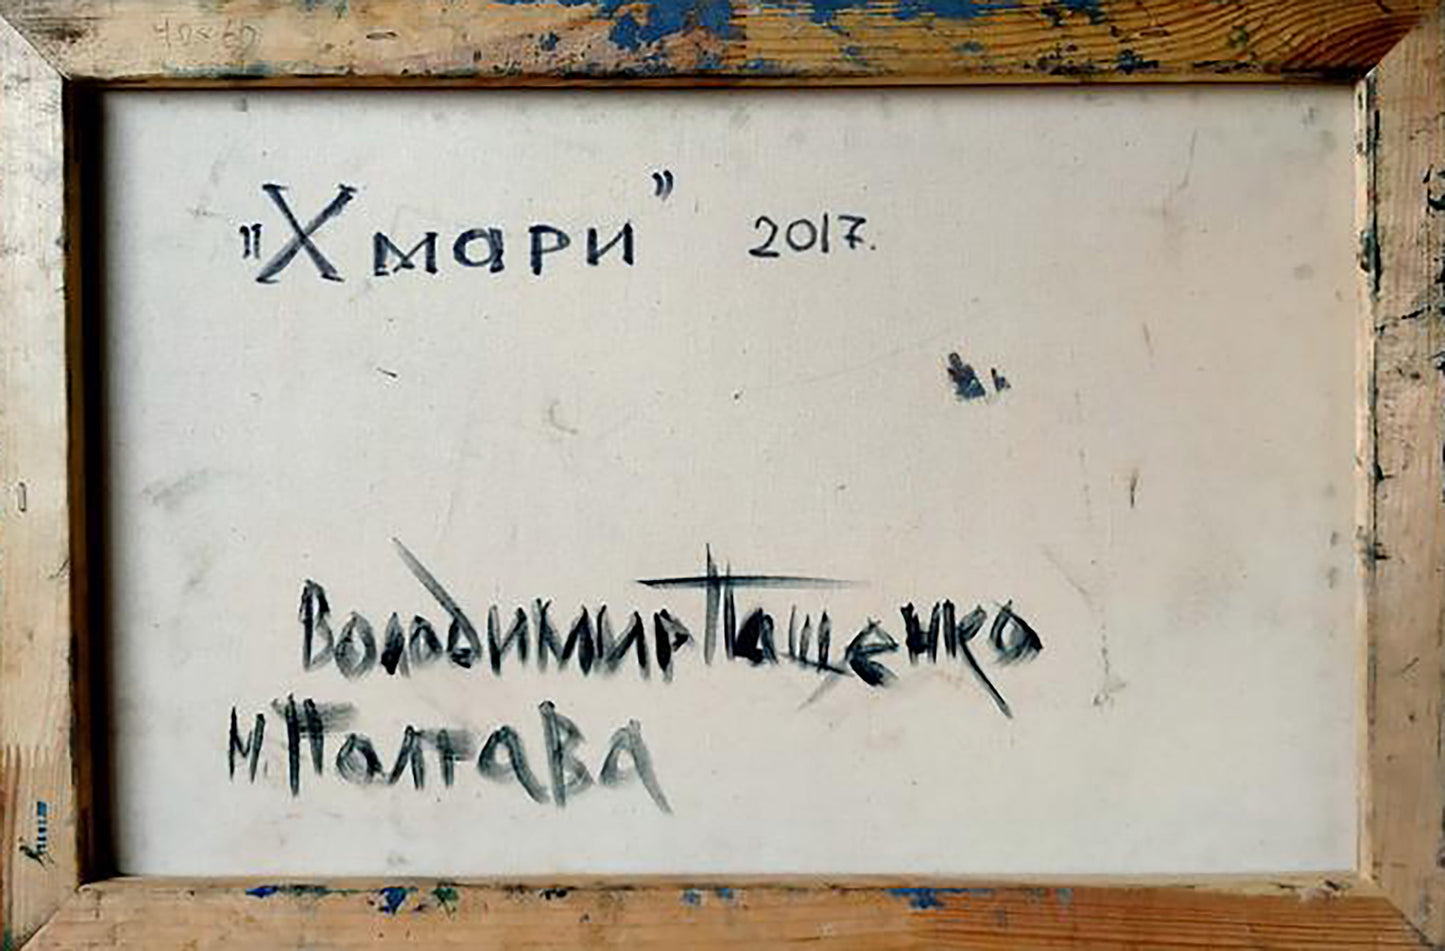 40x60
"Хмари" 2017.
Володимир Пащенко
м. Полтава